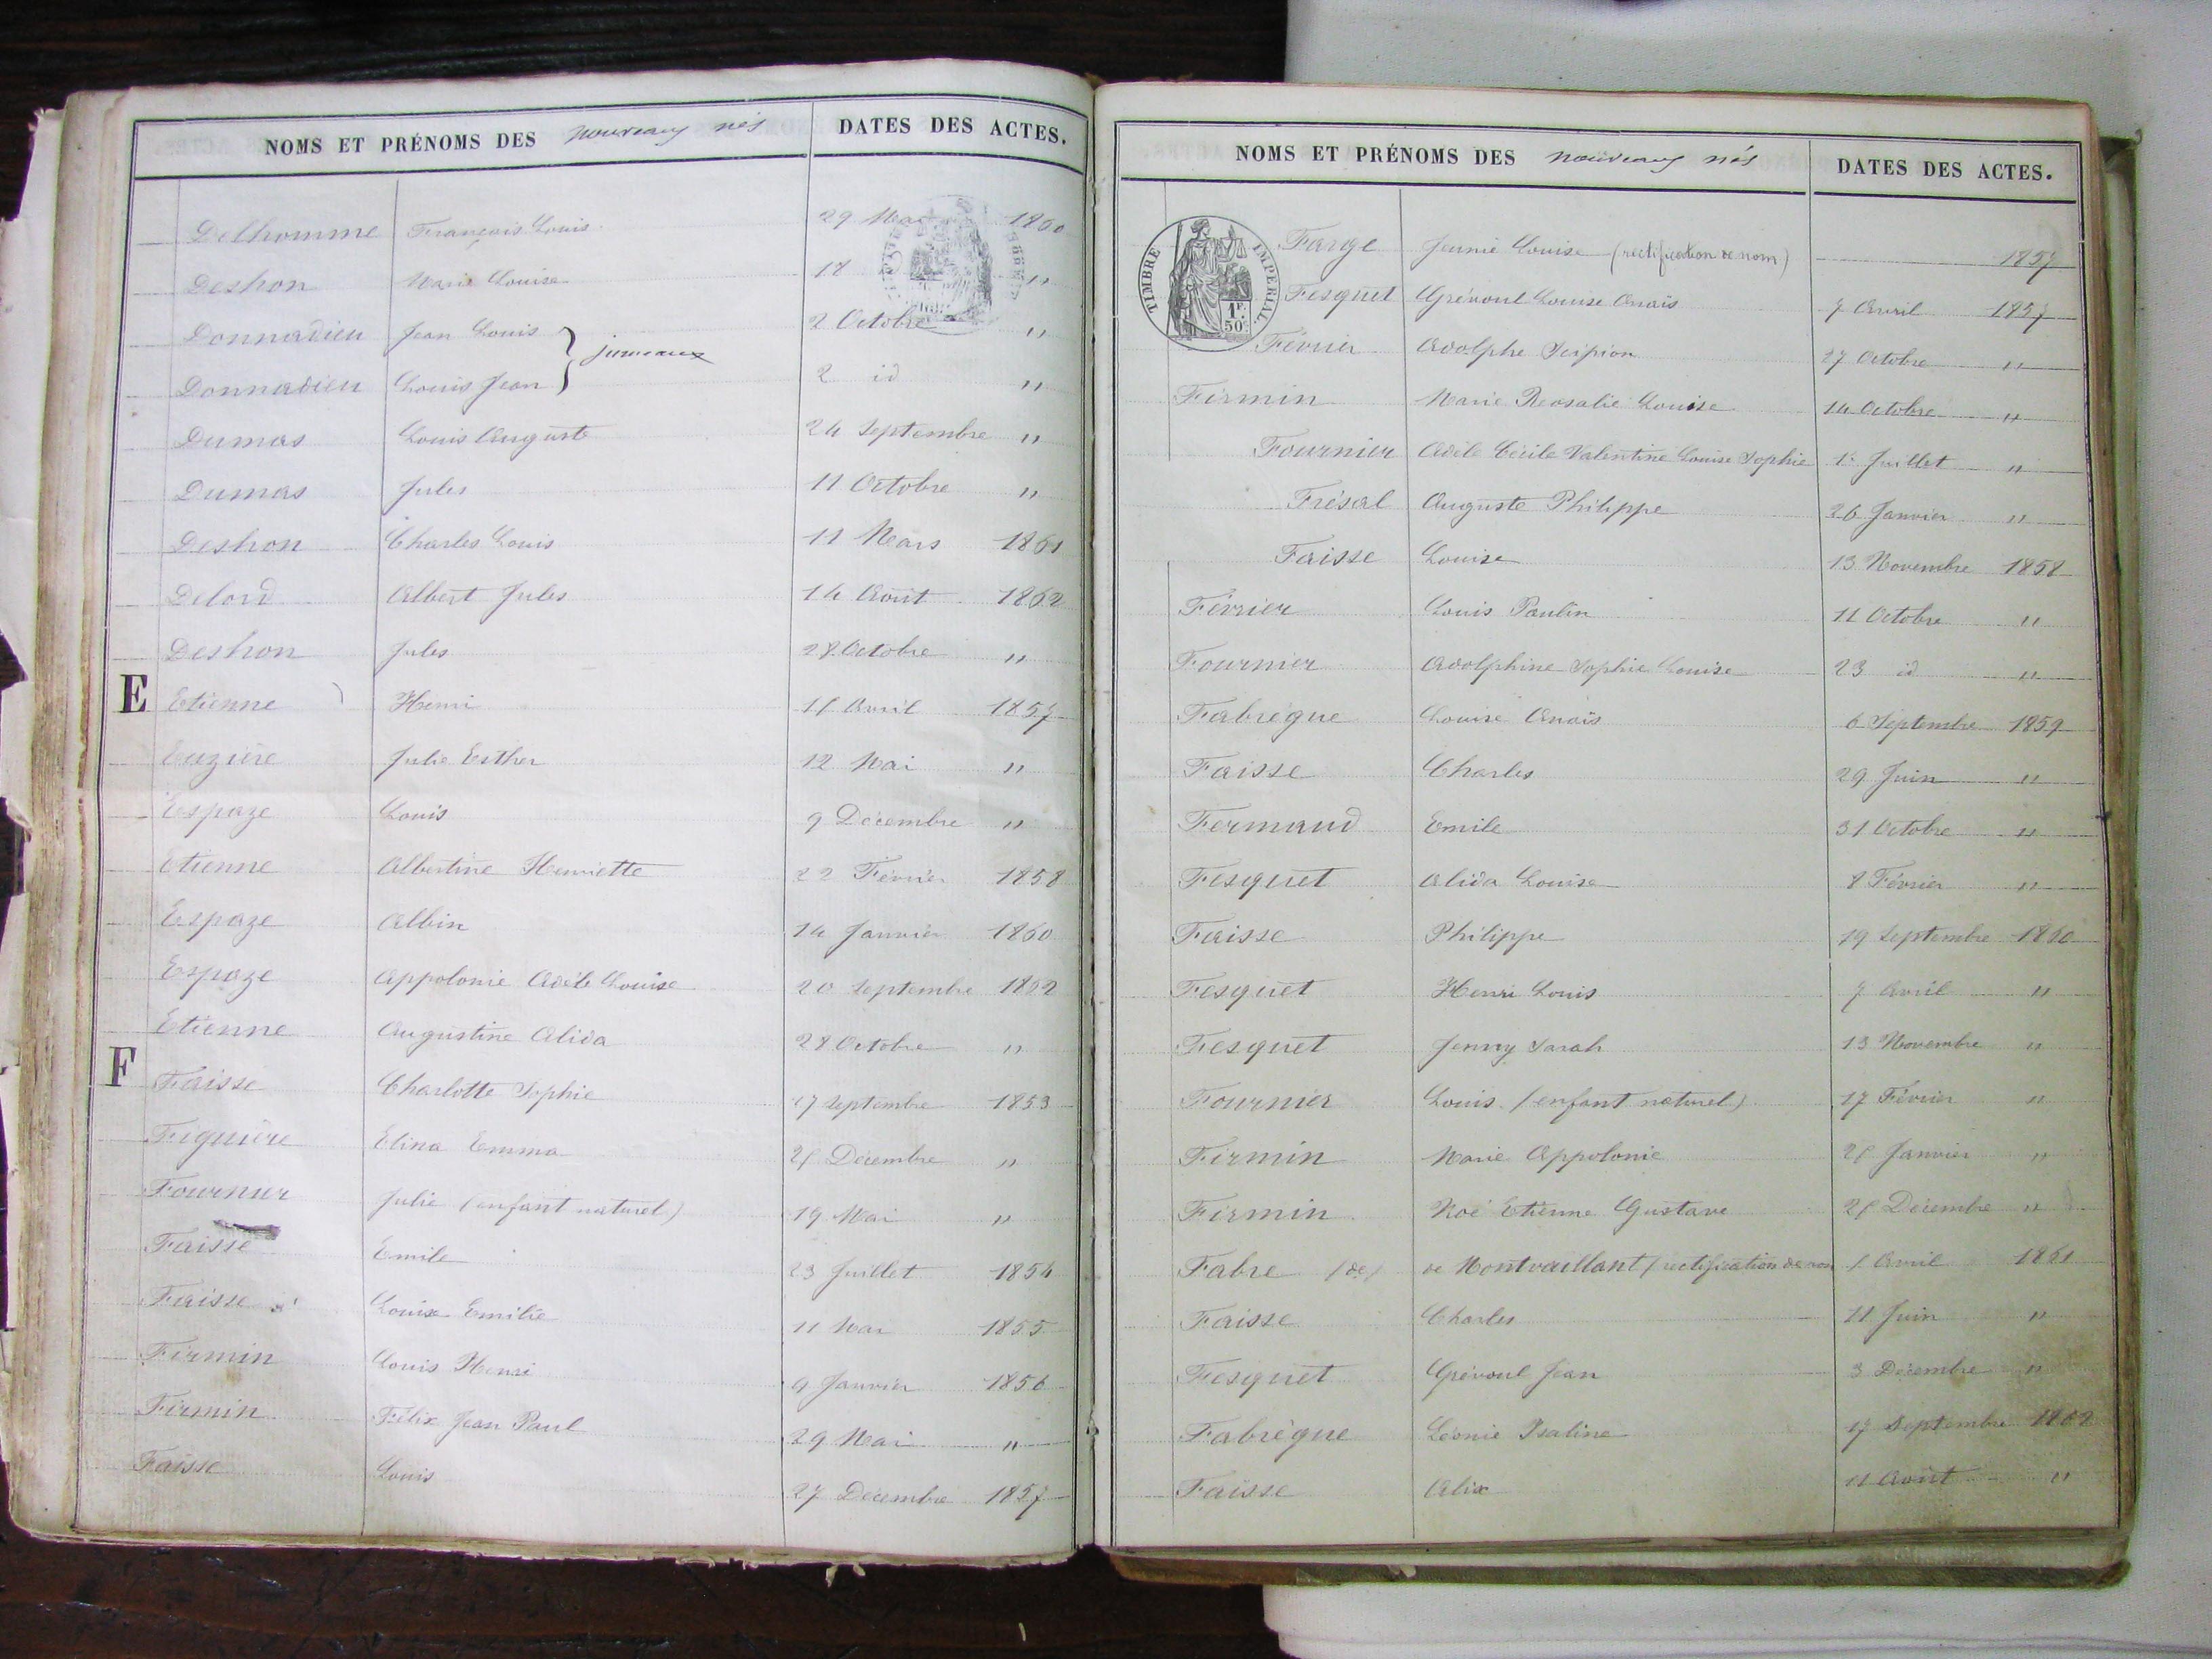 NOMS ET PRÉNOMS DES nouveaux nés DATES DES ACTES.
Delhomme François Louis 29 Mai 1860
Deshon Marie Louise 18 "
Donnadieu Jean Louis 2 Octobre "
jumeaux
Donnadieu Louis Jean 2 id "
Dumas Louis Auguste 24 Septembre "
Dumas Jules 11 Octobre "
Deshon Charles Louis 11 Mars 1861
Delord Albert Jules 14 Août 1862
Deshon Jules 28 Octobre "
E Etienne Henri Avril 1857
Euzière Julie Esther 12 Mai "
Espaze Louis 9 Décembre "
Etienne Albertine Henriette 22 Février 1858
Espaze Albin 14 Janvier 1860
Espaze Appolonie Adèle Louise 20 Septembre 1862
Etienne Augustine Alida 28 Octobre "
F Faisse Charlotte Sophie 17 Septembre 1853
Figuière Elina Emma Décembre "
Fournier Julie (enfant naturel) 19 Mai "
Faisse Emile 23 Juillet 1854
Faisse Louise Emilie 11 Mai 1855
Firmin Louis Henri 9 Janvier 1856
Firmin Félix Jean Paul 29 Mai "
Faisse Louis 27 Décembre 1857
NOMS ET PRÉNOMS DES nouveaux nés DATES DES ACTES.
TIMBRE IMPÉRIAL 1F. 50c.
Farge Jennie Louise (rectification de nom) 1857
Fesquet Grévoul Louise Anaïs 7 Avril 1857
Février Adolphe Scipion 27 Octobre "
Firmin Marie Rosalie Louise 14 Octobre "
Fournier Adèle Cécile Valentine Louise Sophie 1er Juillet "
Frésal Auguste Philippe 26 Janvier "
Faisse Louise 13 Novembre 1858
Février Louis Paulin 11 Octobre "
Fournier Adolphine Sophie Louise 23 id "
Fabrègue Louise Anaïs 6 Septembre 1859
Faisse Charles 29 Juin "
Fermaud Emile 31 Octobre "
Fesquet Alida Louise 8 Février "
Faisse Philippe 19 Septembre 1860
Fesquet Henri Louis 7 Avril "
Fesquet Jenny Sarah 13 Novembre "
Fournier Louis (enfant naturel) 17 Février "
Firmin Marie Appolonie Janvier "
Firmin Noé Etienne Gustave Décembre "
Fabre (de) de Montvaillant (rectification de nom Avril 1861
Faisse Charles 11 Juin "
Fesquet Grévoul Jean 3 Décembre "
Fabrègue Léonie Isaline 17 Septembre 1862
Faïsse Alix 11 Août "